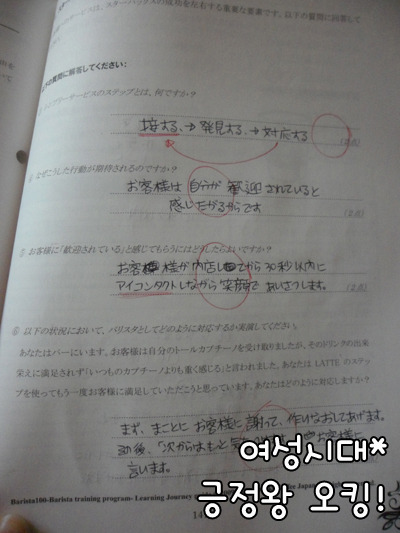 サービスは、スターバックスの成功を左右する重要な要素です。以下の質問に回答して
の質問に解答してください:
サービスのステップとは、何ですか?
接する、→発見する、→対応する
(2点)
なぜこうした行動が期待されるのですか?
お客様は自分が歓迎されていると
感じたがるからです
(2点)
お客様に「歓迎されている」と感じてもらうにはどうしたらよいですか?
お客様が内店してから30秒以内に
アイコンタクトしながら笑顔であいさつします。
(2点)
以下の状況において、バリスタとしてどのように対応するか実演してください。
あなたはバーにいます。お客様は自分のトールカプチーノを受け取りましたが、そのドリンクの出来
栄えに満足されず「いつものカプチーノよりも重く感じる」と言われました。あなたは LATTE のステッ
プを使ってもう一度お客様に満足していただこうと思っています。あなたはどのように対応しますか?
まず、まことにお客様に謝って、作りなおしてあげます。
の後、「次からはもと お客様に
言います。
여성시대*
긍정왕 오킹!
Barista100-Barista training program- Learning Journey
Japan
14